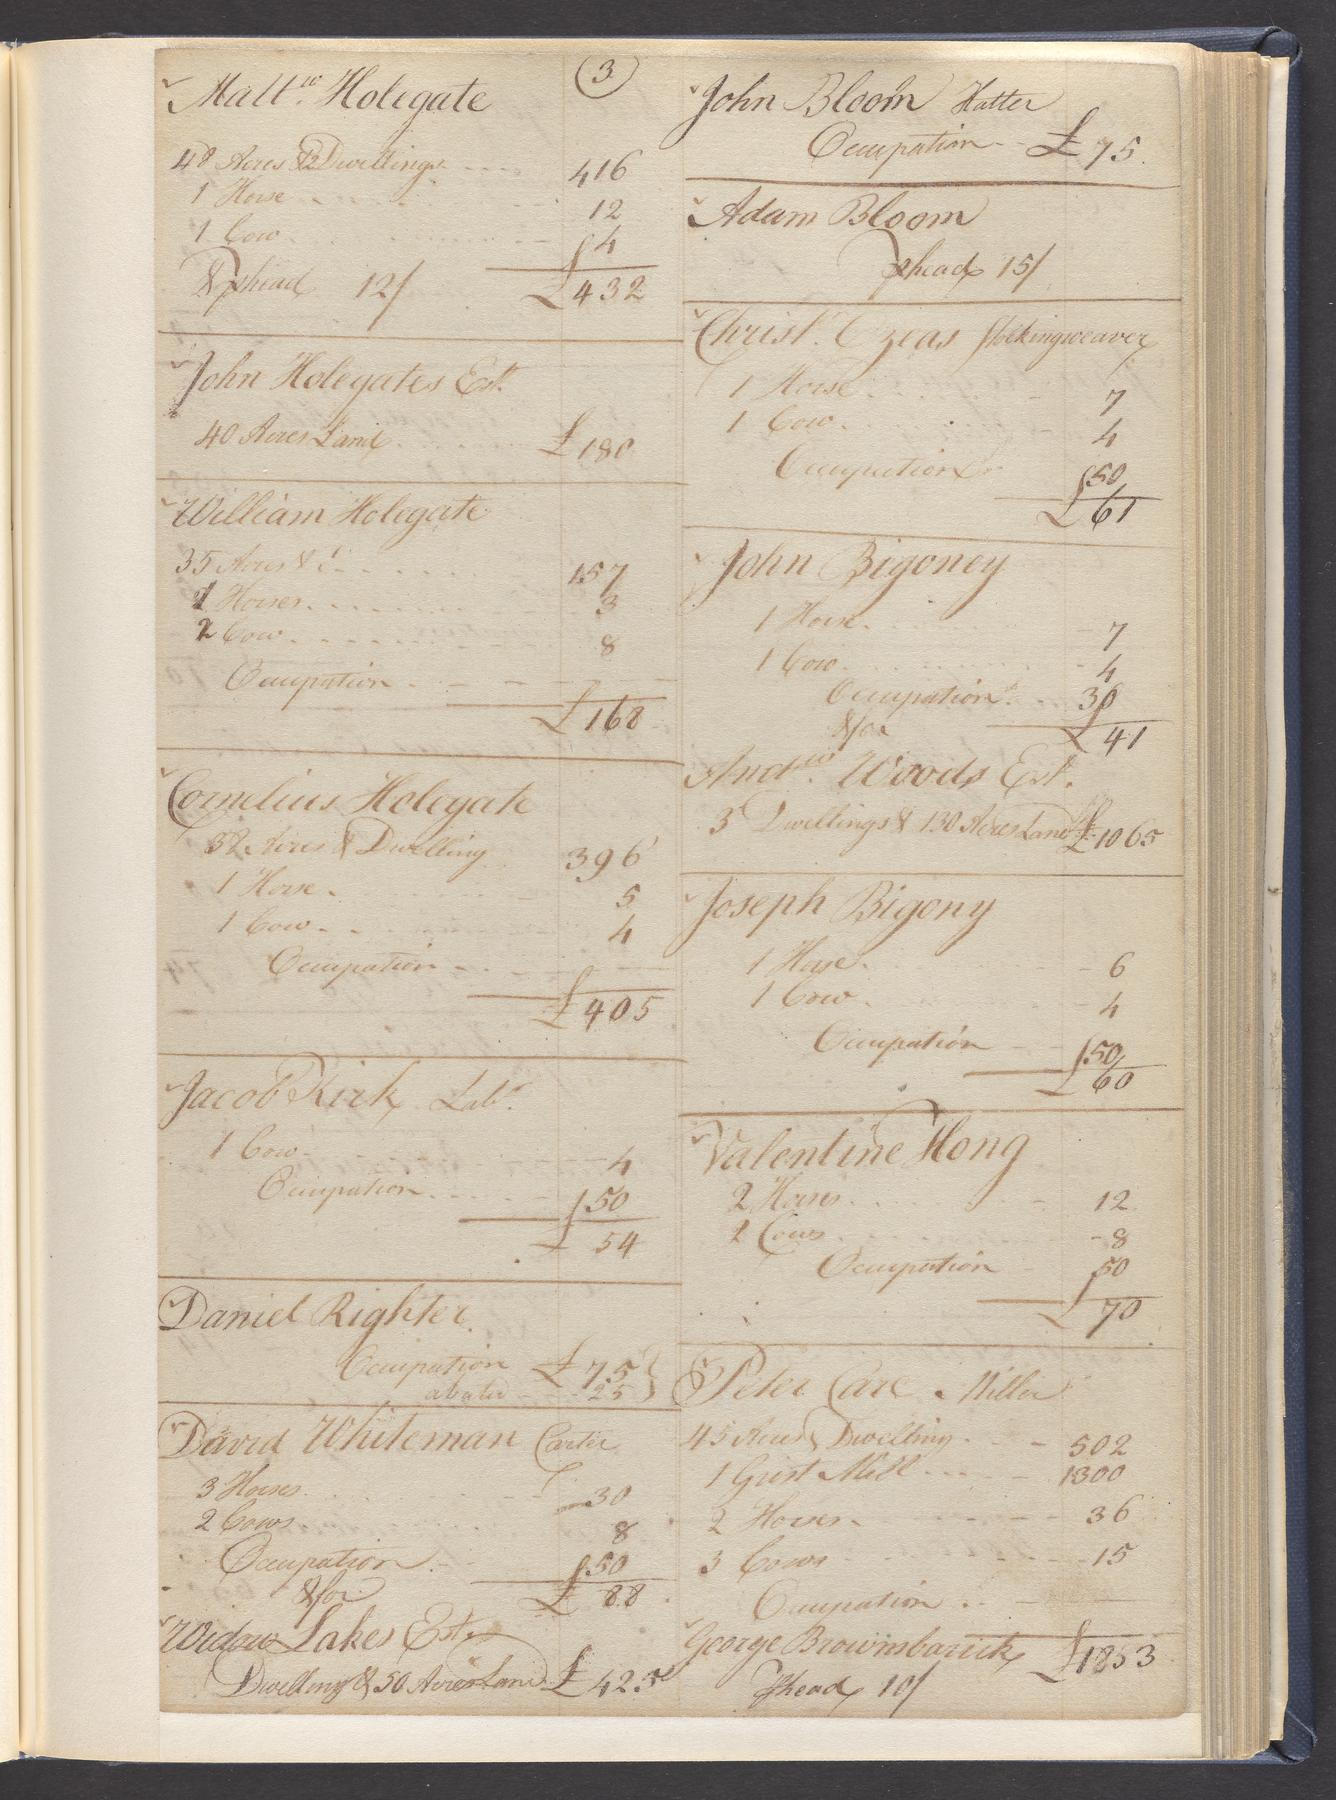 3
Matt.w Holegate
48 Acres & 2 Dwellings 416
1 Horse 12
1 Cow 4
& phead 12/ £432
John Holegates Est.
40 Acres Land £180
William Holegate
35 Acres &c 157
1 Horses 3
2 Cow 8
Occupation
£168
Cornelius Holegate
32 Acres & Dwelling 396
1 Horse 5
1 Cow 4
Occupation
£405
Jacob Kirk Labr.
1 Cow 4
Occupation 50
£54
Daniel Righter
Occupation £75
abated 25
David Whiteman Carter
3 Horses 30
2 Cows 8
Occupation 50
& for £88
Widow Lakes Est.
Dwelling & 50 Acres Land £425
John Bloom Hatter
Occupation £75
Adam Bloom
phead 15/
Christ. Ozeas Stockingweaver
1 Horse 7
1 Cow 4
Occupation 50
£61
John Bigoney
1 Horse 7
1 Cow 4
Occupation 30
& for £41
Andw. Woods Est.
3 Dwellings & 130 Acres Land £1065
Joseph Bigony
1 Horse 6
1 Cow 4
Occupation 50
£60
Valentine Hong
2 Horses 12
2 Cows 8
Occupation 50
£70
Peter Care Miller
45 Acres & Dwelling 502
1 Grist Mill 1300
2 Horses 36
3 Cows 15
Occupation
£1853
George Brownbarick
phead 10/